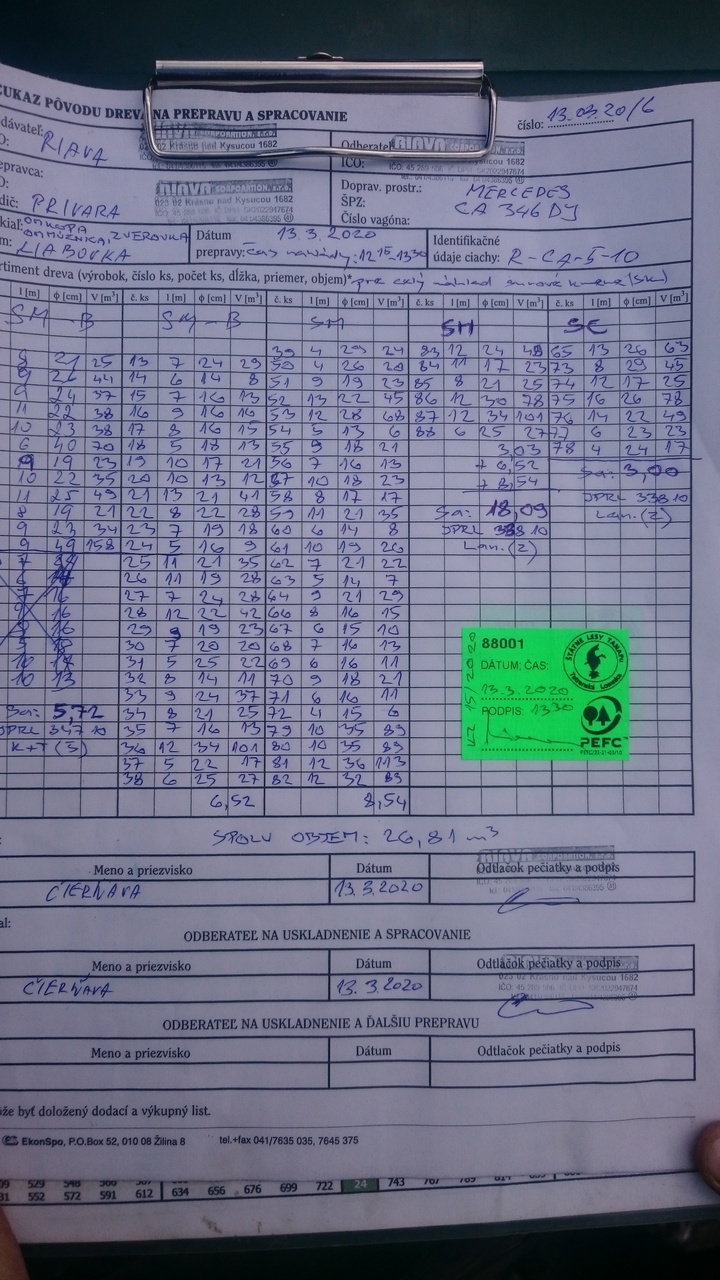 EUKAZ PÔVODU DREVA NA PREPRAVU A SPRACOVANIE
číslo: 13.03.20/6
dávateľ: RIAVA
RIAVA CORPORATION, s.r.o.
023 02 Krásno nad Kysucou 1682
Odberateľ
IČO:
Doprav. prostr.: MERCEDES
ŠPZ: CA 346 DY
Číslo vagóna:
epravca:
RIAVA CORPORATION, s.r.o.
023 02 Krásno nad Kysucou 1682
dič: PRIVARA
kiaľ: ZVEROVKA
m: LIABOVKA
Dátum 13.3.2020
prepravy: čas nakládky: 12 15 - 13 30
Identifikačné
údaje ciachy: R-CA-5-10
rtiment dreva (výrobok, číslo ks, počet ks, dĺžka, priemer, objem)*
l [m] ϕ [cm] V [m³] č. ks l [m] ϕ [cm] V [m³] č. ks l [m] ϕ [cm] V [m³] č. ks l [m] ϕ [cm] V [m³] č. ks l [m] ϕ [cm] V [m³]
SM - B SM - B SM SM SC
39 4 29 24 83 12 24 48 65 13 26 63
8 21 25 13 7 24 29 50 4 26 20 84 11 17 23 73 8 29 45
9 26 44 14 6 14 8 51 9 19 23 85 8 21 25 74 12 17 25
9 24 37 15 7 16 13 52 13 22 45 86 12 30 78 75 16 26 78
11 22 38 16 9 16 16 53 12 28 68 87 12 34 101 76 14 22 49
10 23 38 17 8 16 15 54 5 13 6 88 6 25 27 77 6 23 23
6 40 70 18 5 18 13 55 9 18 21 3,03 78 4 24 17
9 19 23 19 10 17 21 56 7 16 13 + 6,52 Sa: 3,00
10 22 35 20 10 13 12 57 10 18 23 + 8,54
11 25 49 21 13 21 41 58 8 17 17 DPRL 338 10
8 19 21 22 8 22 28 59 11 21 35 Sa: 18,09 Lan. (2)
9 23 34 23 7 19 18 60 6 14 8 DPRL 338 10
9 49 158 24 5 16 9 61 10 19 26 Lan. (2)
25 11 21 35 62 7 21 22
26 11 19 28 63 5 14 7
7 16 27 7 24 28 64 9 21 29
16 28 12 22 42 66 8 16 15
16 29 9 19 23 67 6 15 10
18 30 7 20 20 68 7 16 13
10 17 31 5 25 22 69 6 16 11
10 13 32 8 14 11 70 9 18 21
33 9 24 37 71 6 16 11
Sa: 5,72 34 8 21 25 72 4 15 6
DPRL 337 10 35 7 16 13 79 10 35 89
K+T (3) 36 12 34 101 80 10 35 89
37 5 22 17 81 12 36 113
38 6 25 27 82 12 32 89
6,52 8,54
88001
DÁTUM; ČAS:
13.3.2020
PODPIS: 13 30
ŠTÁTNE LESY TANAPU
PEFC
SPOLU OBJEM: 26,81 m³
Meno a priezvisko Dátum Odtlačok pečiatky a podpis
ČIERŇAVA 13.3.2020
al:
ODBERATEĽ NA USKLADNENIE A SPRACOVANIE
Meno a priezvisko Dátum Odtlačok pečiatky a podpis
ČIERŇAVA 13.3.2020
023 02 Krásno nad Kysucou 1682
ODBERATEĽ NA USKLADNENIE A ĎALŠIU PREPRAVU
Meno a priezvisko Dátum Odtlačok pečiatky a podpis
ôže byť doložený dodací a výkupný list.
EkonSpo, P.O.Box 52, 010 08 Žilina 8 tel.+fax 041/7635 035, 7645 375
552 572 591 612 634 656 676 699 722 24 743 767